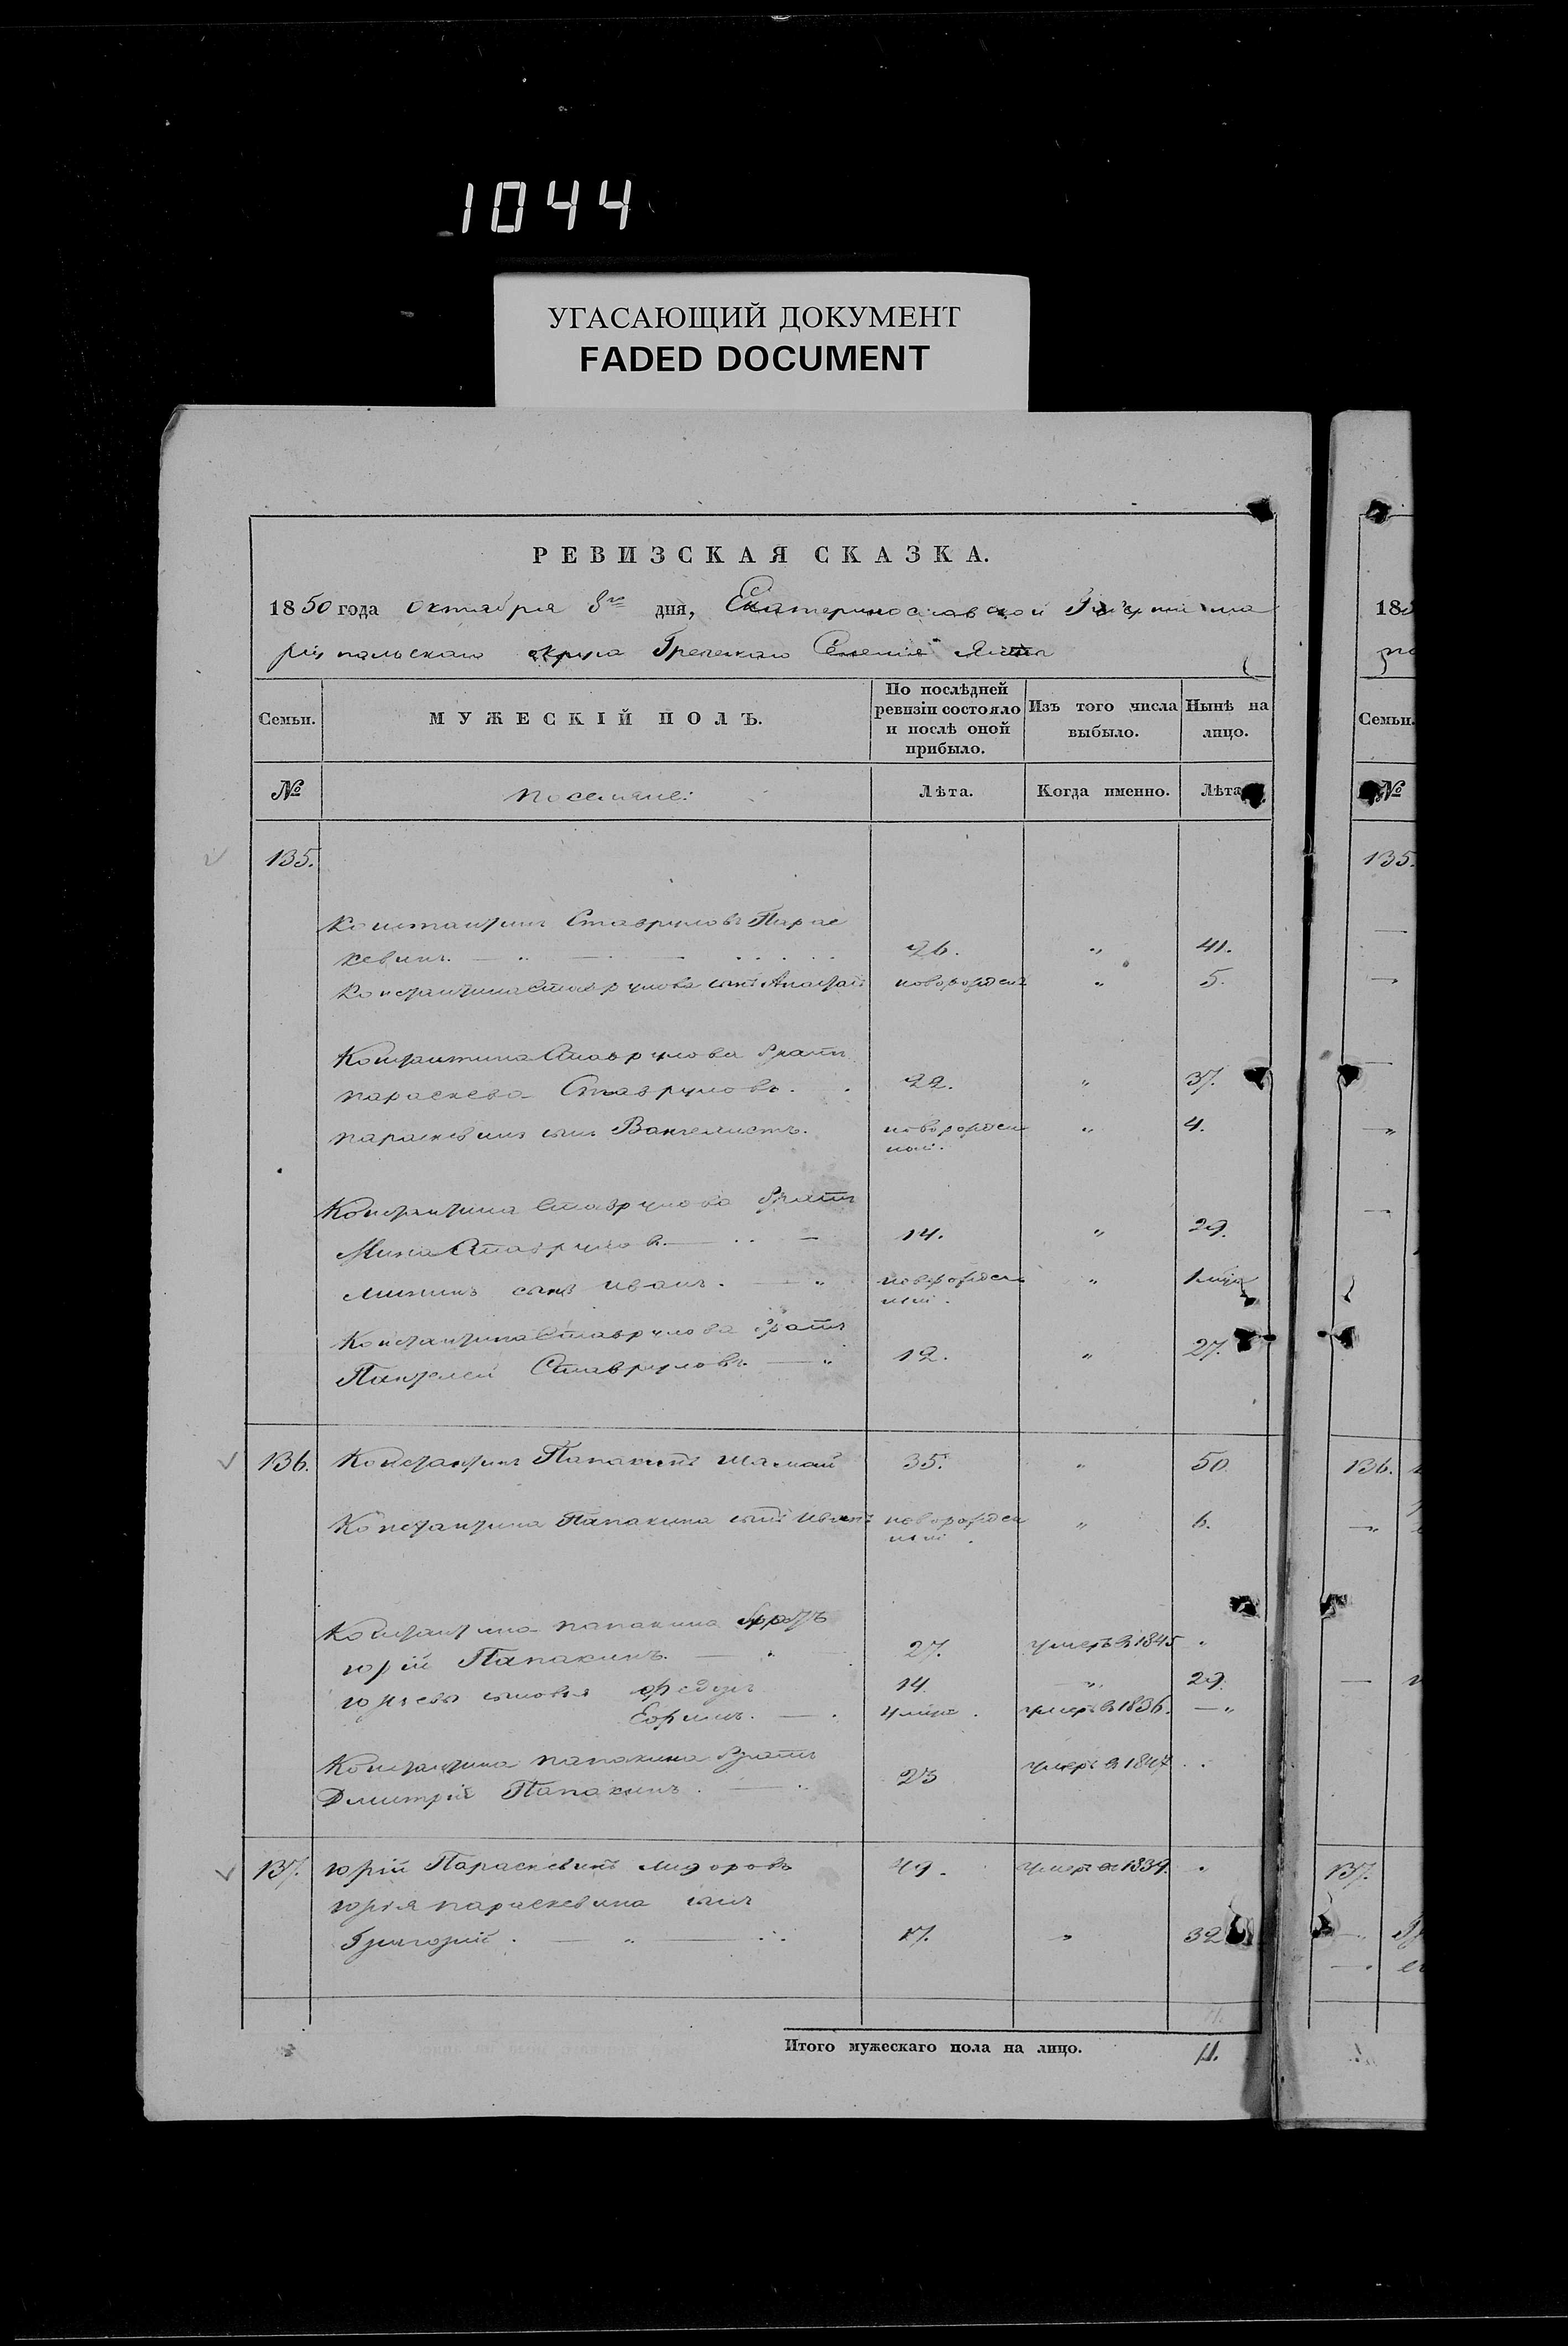 1044
УГАСАЮЩИЙ ДОКУМЕНТ
FADED DOCUMENT
РЕВИЗСКАЯ СКАЗКА.
1850 года Октября 8го дня, Екатеринославской Губерніи Ма
ріупольскаго округа Греческаго Селенія Ялты
Семьи. МУЖЕСКІЙ ПОЛЪ. По послѣдней ревизіи состояло и послѣ оной прибыло. Изъ того числа выбыло. Нынѣ на лицо.
№ поселяне: Лѣта. Когда именно. Лѣта.
135.
Константинъ Ставруловъ Парас
кевинъ. 26. " 41.
Константина Ставрулова сынъ новорожден " 5.
Константина Ставрулова братъ
Параскева Ставруловъ. 22. " 37.
Параскевинъ сынъ Вангелистъ. новорожден
ной. " 4.
Константина Ставрулова братъ
Мина Ставруловъ. 14. " 29.
Мининъ сынъ Иванъ. новорожден
ный. "
Константина Ставрулова братъ
Пантелей Ставруловъ. 12. " 27.
136. Константинъ Папакинъ 35. " 50
Константина Папакина сынъ Иванъ новорожден
ный. " 6.
Константина Папакина братъ
Юрій Папакинъ. 27. умеръ в 1845 "
Юрьевы сыновья Федуръ 14. " 29.
4 умеръ в 1836. — "
Константина Папакина братъ
Дмитрій Папакинъ. 23 умеръ в 1847
137. Юрій Параскевинъ 49. умеръ в 1839. "
Юрія Параскевина сынъ
Григорій. 17. " 32
Итого мужескаго пола на лицо. 11.
18
Семьи.
№
135.
136.
137.